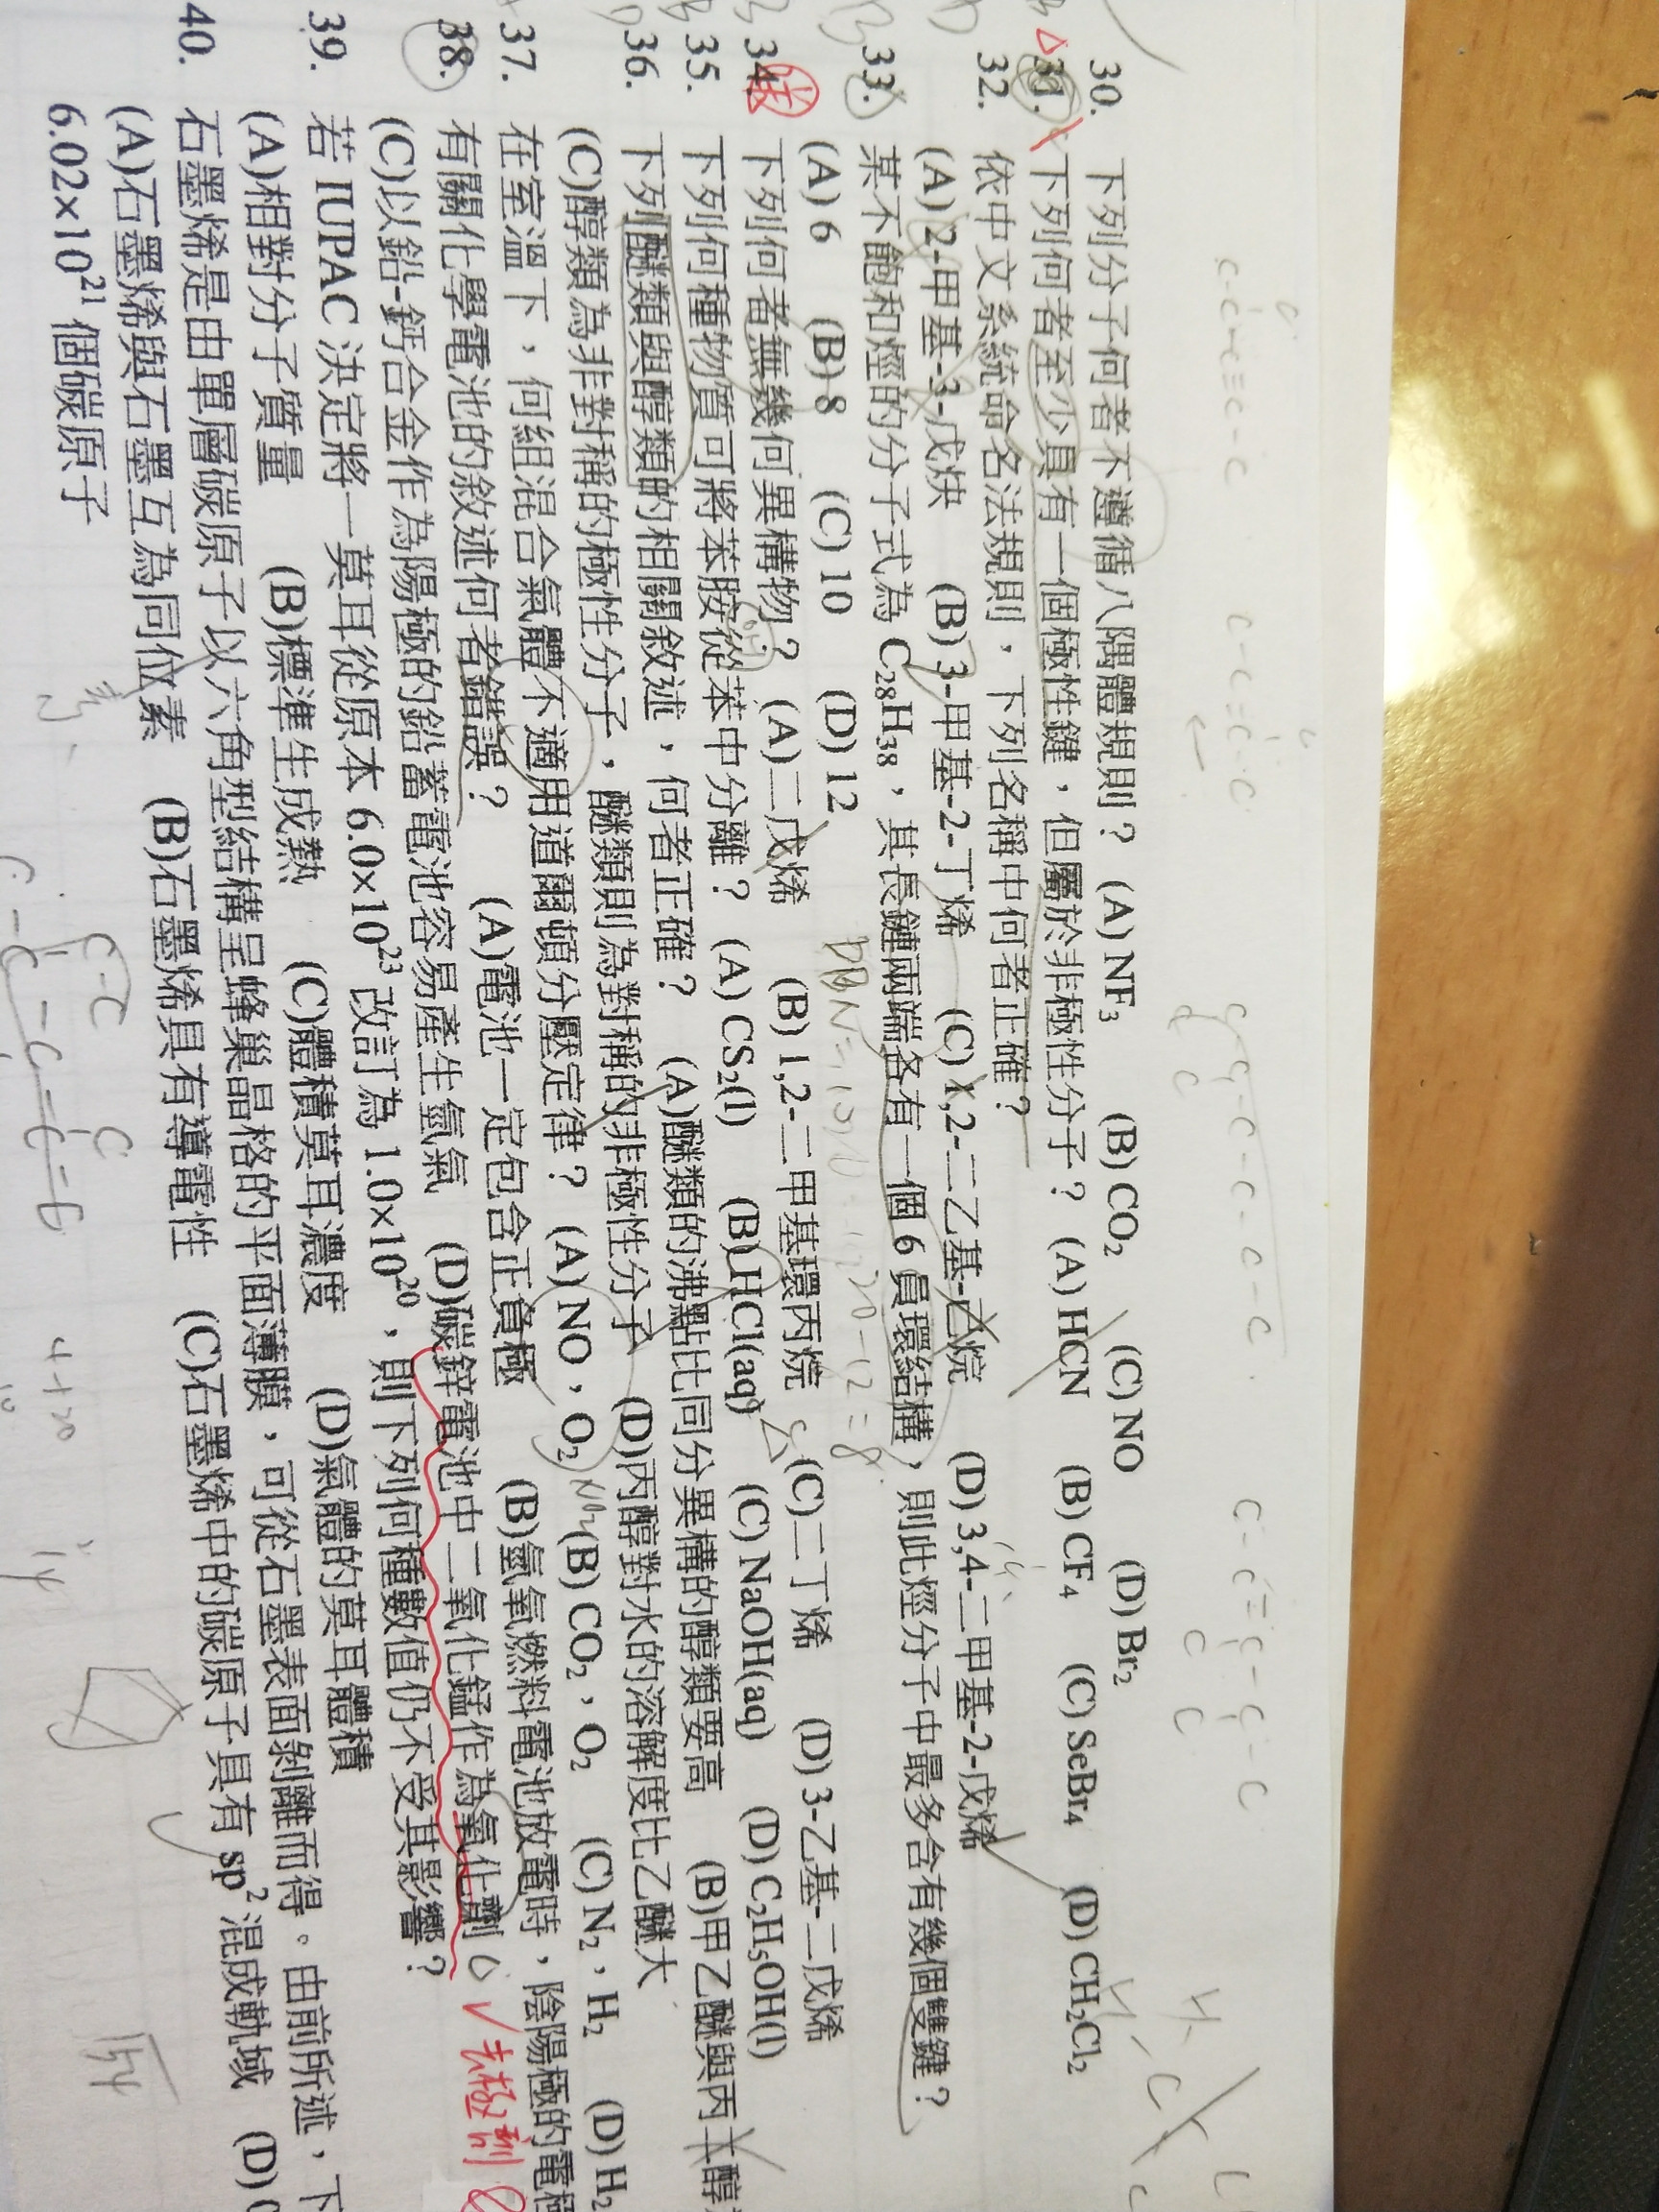 30. 下列分子何者不遵循八隅體規則？ (A) NF₃ (B) CO₂ (C) NO (D) Br₂
31. 下列何者至少具有一個極性鍵，但屬於非極性分子？ (A) HCN (B) CF₄ (C) SeBr₄ (D) CH₂Cl₂
32. 依中文系統命名法規則，下列名稱中何者正確？
(A) 2-甲基-3-戊炔 (B) 3-甲基-2-丁烯 (C) 1,2-二乙基-乙烷 (D) 3,4-二甲基-2-戊烯
33. 某不飽和烴的分子式為 C₂₈H₃₈，其長鏈兩端各有一個 6 員環結構，則此烴分子中最多含有幾個雙鍵？
(A) 6 (B) 8 (C) 10 (D) 12
DBN = 20-12=8
34. 下列何者無幾何異構物？ (A)二戊烯 (B) 1,2-二甲基環丙烷 (C)二丁烯 (D) 3-乙基-二戊烯
35. 下列何種物質可將苯胺從苯中分離？ (A) CS₂(l) (B) HCl(aq) (C) NaOH(aq) (D) C₂H₅OH(l)
36. 下列醚類與醇類的相關敘述，何者正確？ (A)醚類的沸點比同分異構的醇類要高 (B)甲乙醚與丙醇
(C)醇類為非對稱的極性分子，醚類則為對稱的非極性分子 (D)丙醇對水的溶解度比乙醚大
37. 在室溫下，何組混合氣體不適用道爾頓分壓定律？ (A) NO，O₂ NO₂ (B) CO₂，O₂ (C) N₂，H₂ (D) H₂
38. 有關化學電池的敘述何者錯誤？ (A)電池一定包含正負極 (B)氫氧燃料電池放電時，陰陽極的電極
(C)以鉛-鈣合金作為陽極的鉛蓄電池容易產生氫氣 (D)碳鋅電池中二氧化錳作為氧化劑 去極劑
39. 若 IUPAC 決定將一莫耳從原本 6.0×10²³ 改訂為 1.0×10²⁰，則下列何種數值仍不受其影響？
(A)相對分子質量 (B)標準生成熱 (C)體積莫耳濃度 (D)氣體的莫耳體積
40. 石墨烯是由單層碳原子以六角型結構呈蜂巢晶格的平面薄膜，可從石墨表面剝離而得。由前所述，下
(A)石墨烯與石墨互為同位素 (B)石墨烯具有導電性 (C)石墨烯中的碳原子具有 sp² 混成軌域 (D)
6.02×10²¹ 個碳原子